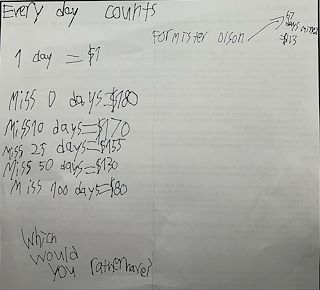 Every day counts
For mister olson
$7
days missed
=$173
1 day = $1
Miss 0 days=$180
Miss 10 days=$170
Miss 25 days=$155
Miss 50 days=$130
Miss 100 days=$80
Which
would
you rather have?